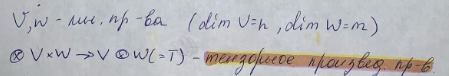 V, W - лин. пр-ва (dim V=n, dim W=m)
⊗ V×W → V⊗W(=T) - тензорное произвед. пр-в